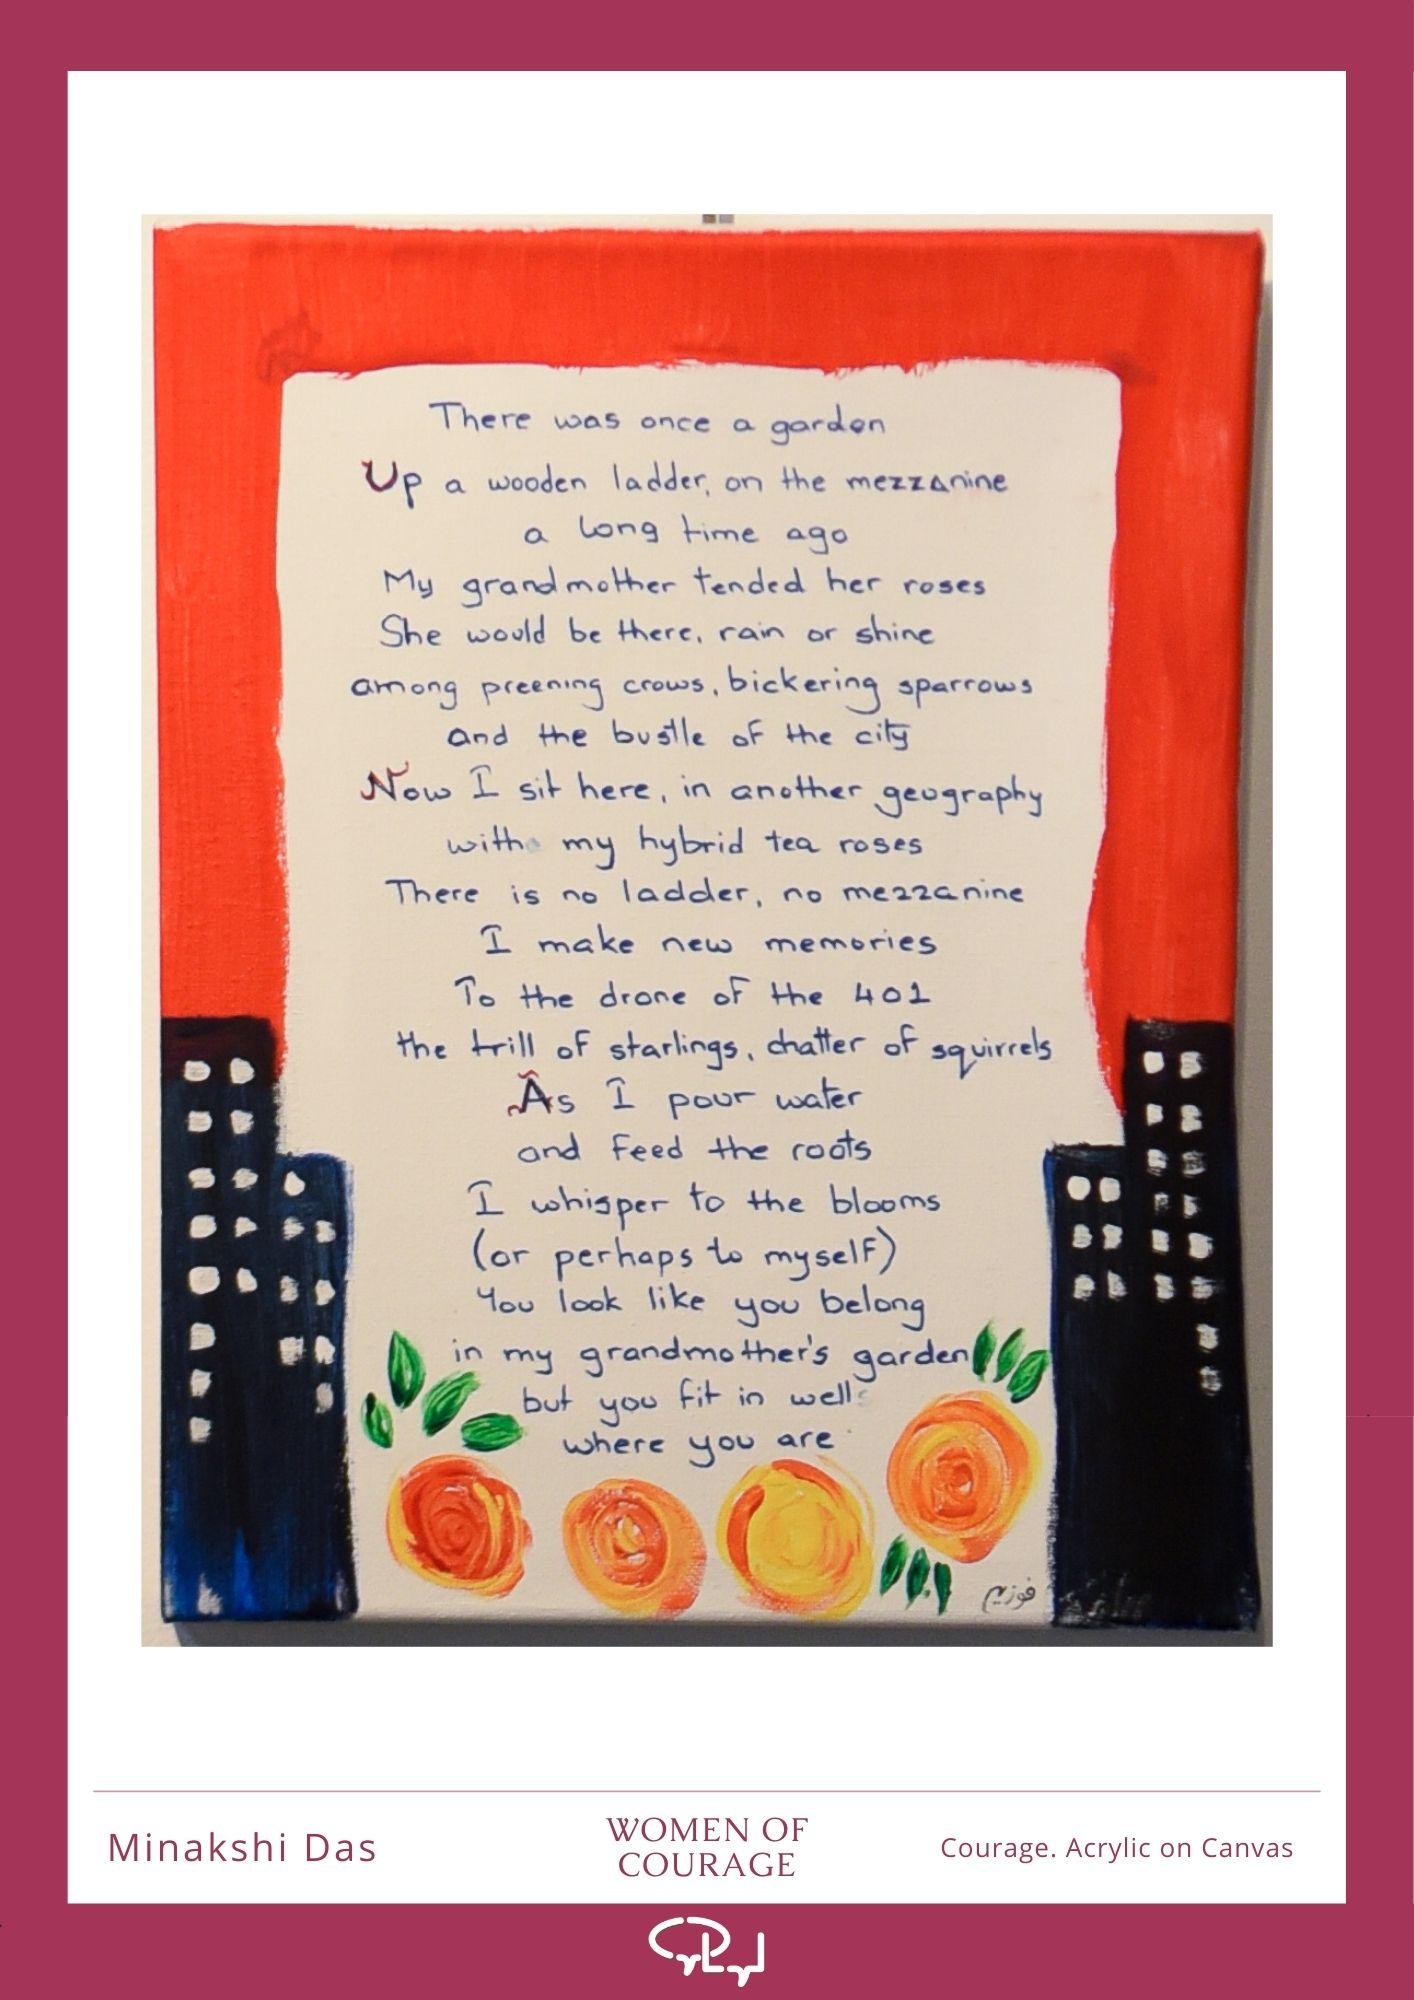 There was once a garden
Up a wooden ladder, on the mezzanine
a long time ago
My grandmother tended her roses
She would be there, rain or shine
among preening crows, bickering sparrows
and the bustle of the city
Now I sit here, in another geography
with my hybrid tea roses
There is no ladder, no mezzanine
I make new memories
To the drone of the 401
the trill of starlings, chatter of squirrels
As I pour water
and feed the roots
I whisper to the blooms
(or perhaps to myself)
You look like you belong
in my grandmother's garden
but you fit in well
where you are
Minakshi Das
WOMEN OF
COURAGE
Courage. Acrylic on Canvas